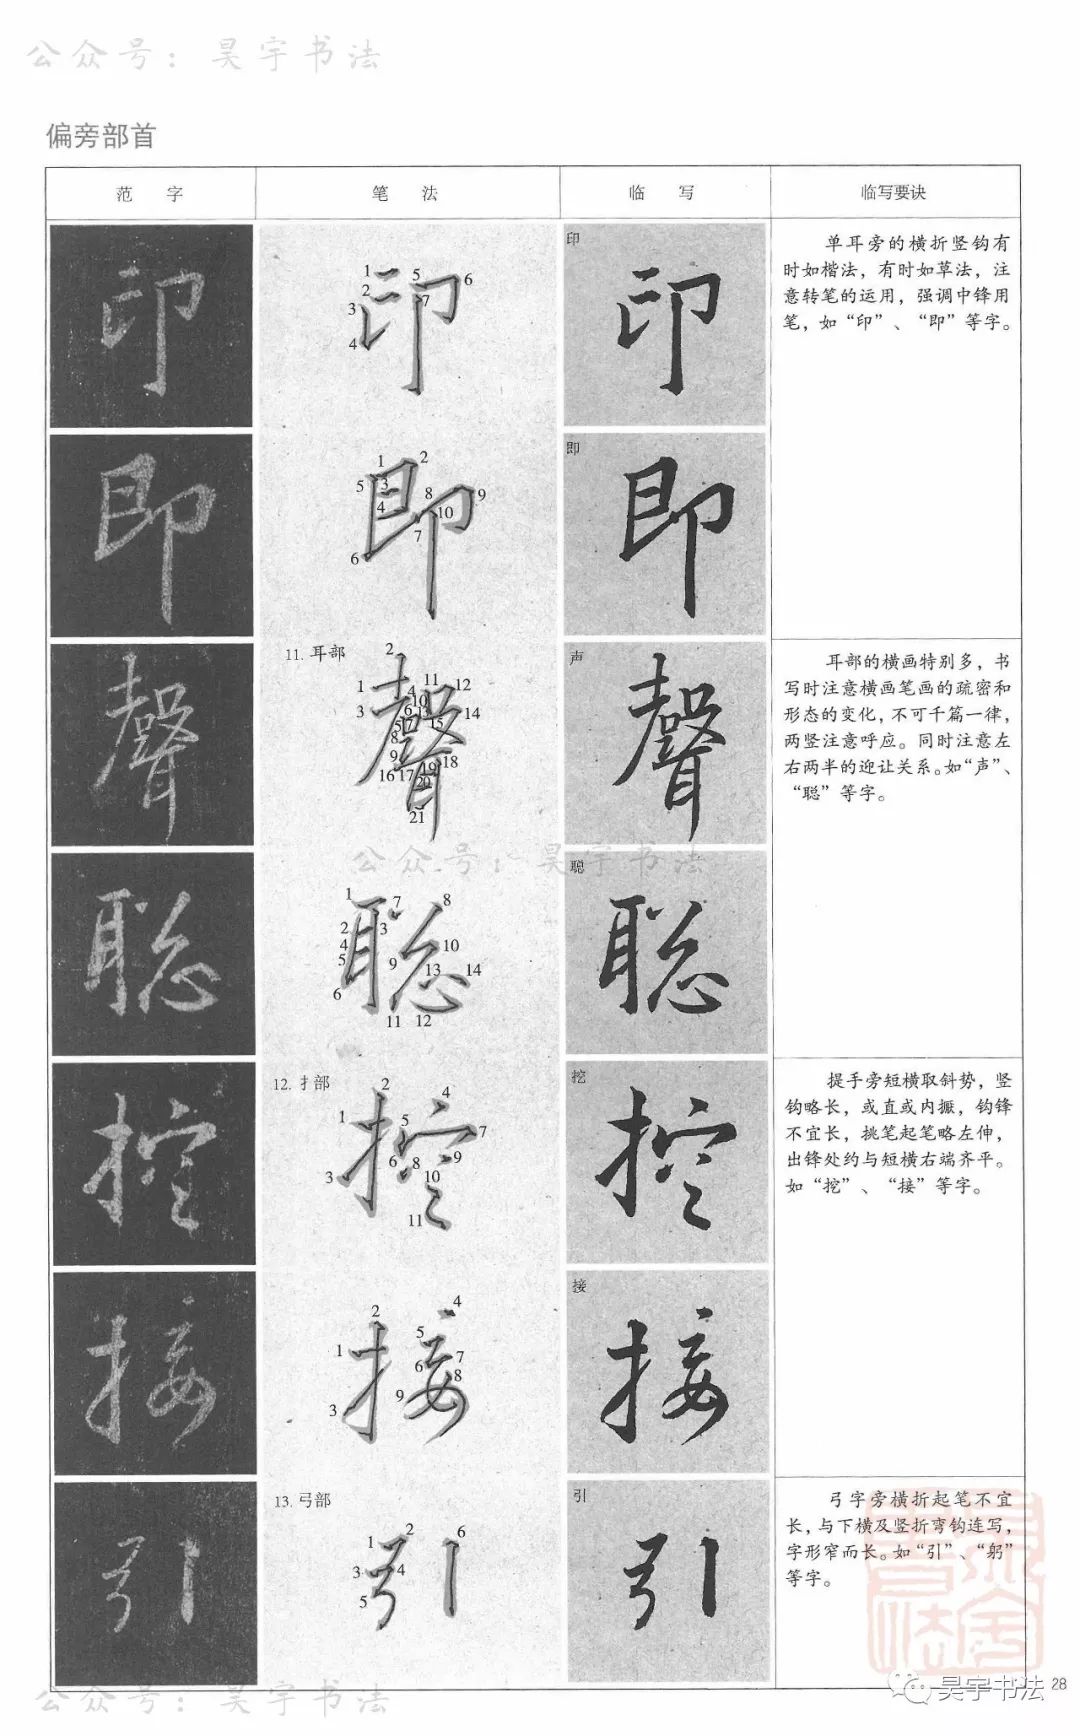 公众号：昊宇书法
偏旁部首
范 字
笔 法
临 写
临写要诀
印
1 2 3 4 5 6 7
印
印
单耳旁的横折竖钩有
时如楷法，有时如草法，注
意转笔的运用，强调中锋用
笔，如“印”、“即”等字。
即
1 2 3 4 5 6 7 8 9 10
即
即
11. 耳部
聲
1 2 3 4 5 6 7 8 9 10 11 12 13 14 15 16 17 18 19 20 21
声
聲
耳部的横画特别多，书
写时注意横画笔画的疏密和
形态的变化，不可千篇一律，
两竖注意呼应。同时注意左
右两半的迎让关系。如“声”、
“聪”等字。
公众号：昊宇书法
聪
1 2 3 4 5 6 7 8 9 10 11 12 13 14
聪
聪
12. 扌部
挖
1 2 3 4 5 6 7 8 9 10 11
挖
提手旁短横取斜势，竖
钩略长，或直或内擫，钩锋
不宜长，挑笔起笔略左伸，
出锋处约与短横右端齐平。
如“挖”、“接”等字。
接
1 2 3 4 5 6 7 8 9
接
接
13. 弓部
引
1 2 3 4 5 6
引
引
弓字旁横折起笔不宜
长，与下横及竖折弯钩连写，
字形窄而长。如“引”、“躬”
等字。
公众号：昊宇书法
昊宇书法
28